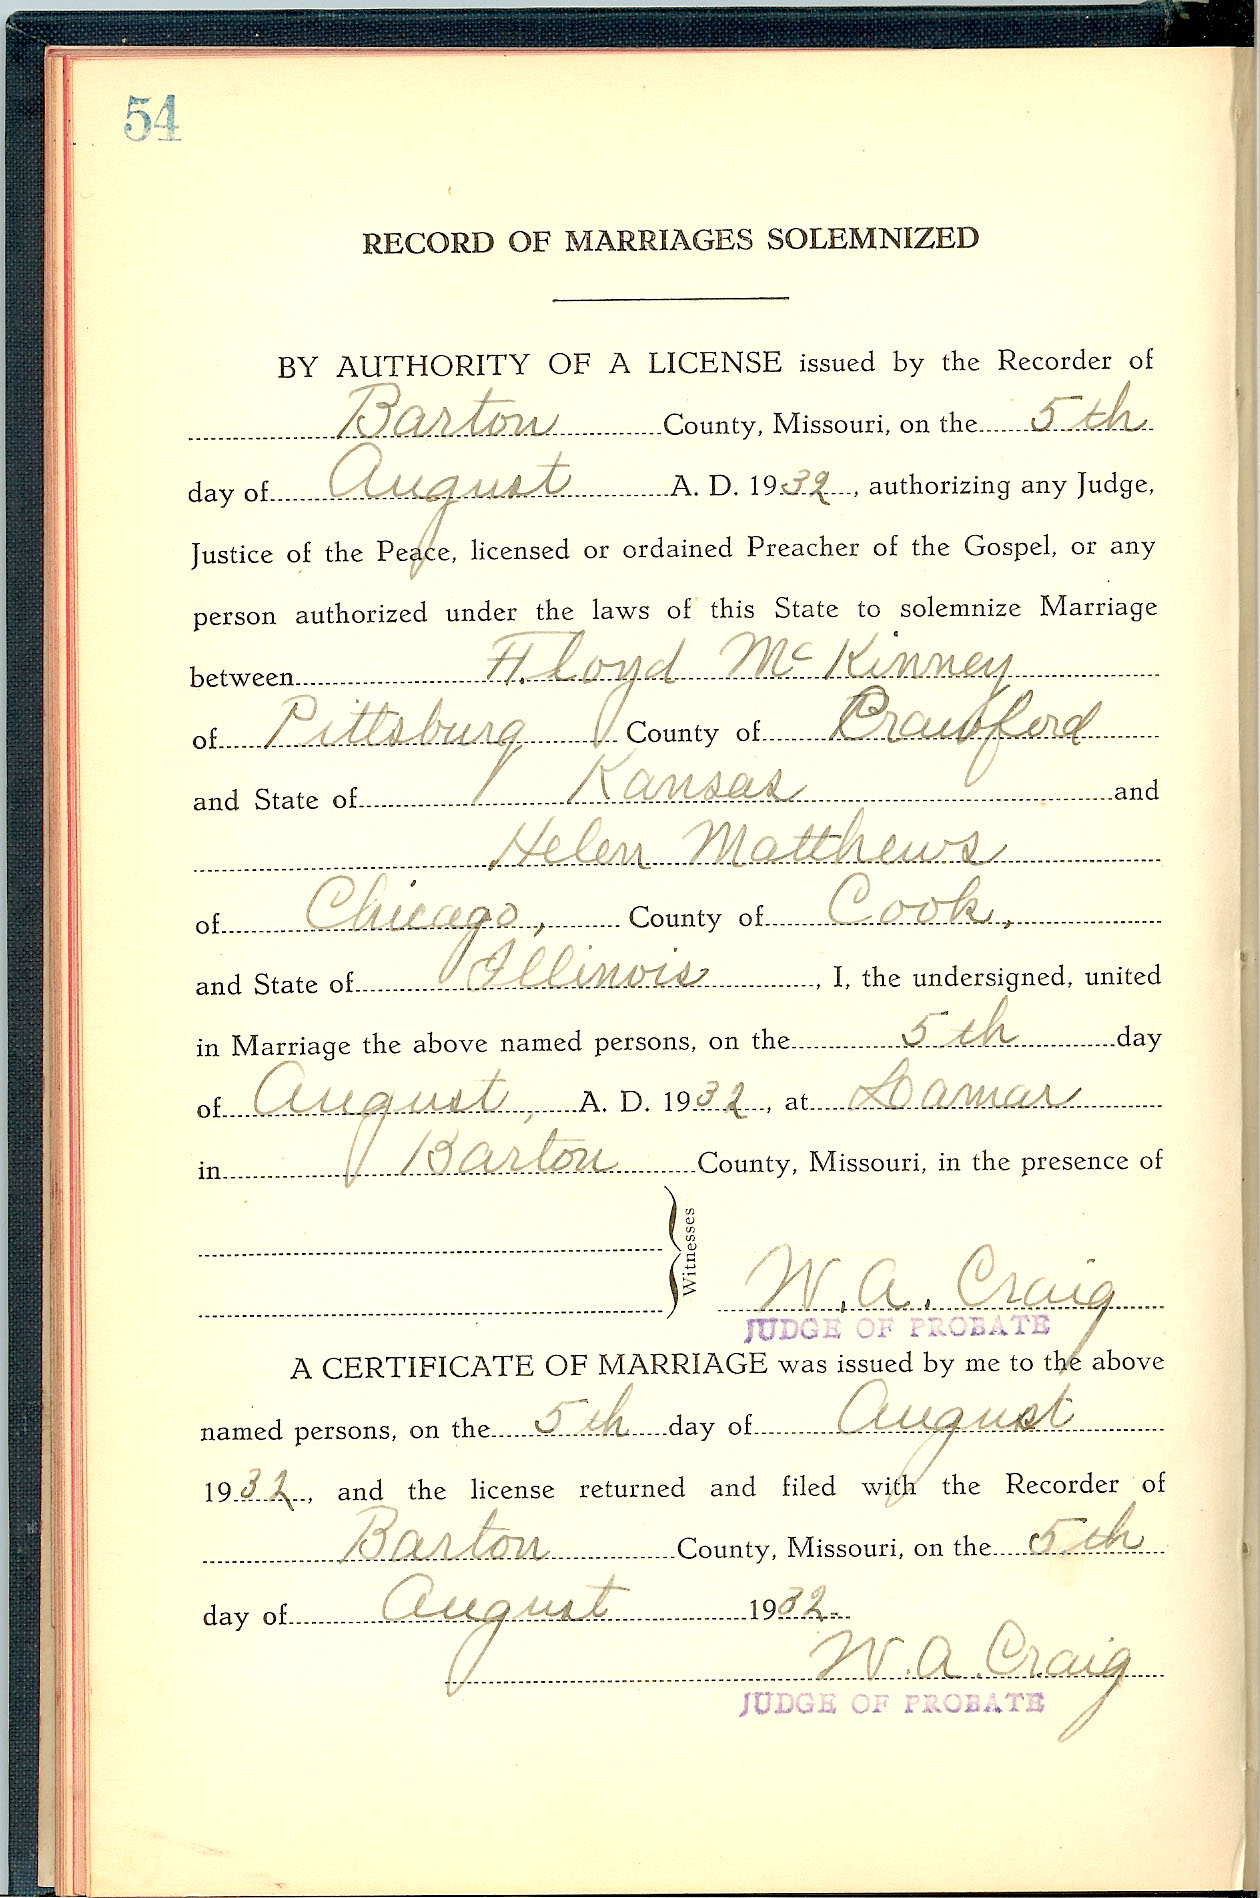 54
RECORD OF MARRIAGES SOLEMNIZED
BY AUTHORITY OF A LICENSE issued by the Recorder of
Barton County, Missouri, on the 5th
day of August A. D. 1932, authorizing any Judge,
Justice of the Peace, licensed or ordained Preacher of the Gospel, or any
person authorized under the laws of this State to solemnize Marriage
between Floyd McKinney
of Pittsburg County of Crawford
and State of Kansas and
Helen Matthews
of Chicago, County of Cook,
and State of Illinois, I, the undersigned, united
in Marriage the above named persons, on the 5th day
of August, A. D. 1932, at Lamar
in Barton County, Missouri, in the presence of
Witnesses
W. A. Craig
JUDGE OF PROBATE
A CERTIFICATE OF MARRIAGE was issued by me to the above
named persons, on the 5th day of August
1932, and the license returned and filed with the Recorder of
Barton County, Missouri, on the 5th
day of August 1932.
W. A. Craig
JUDGE OF PROBATE